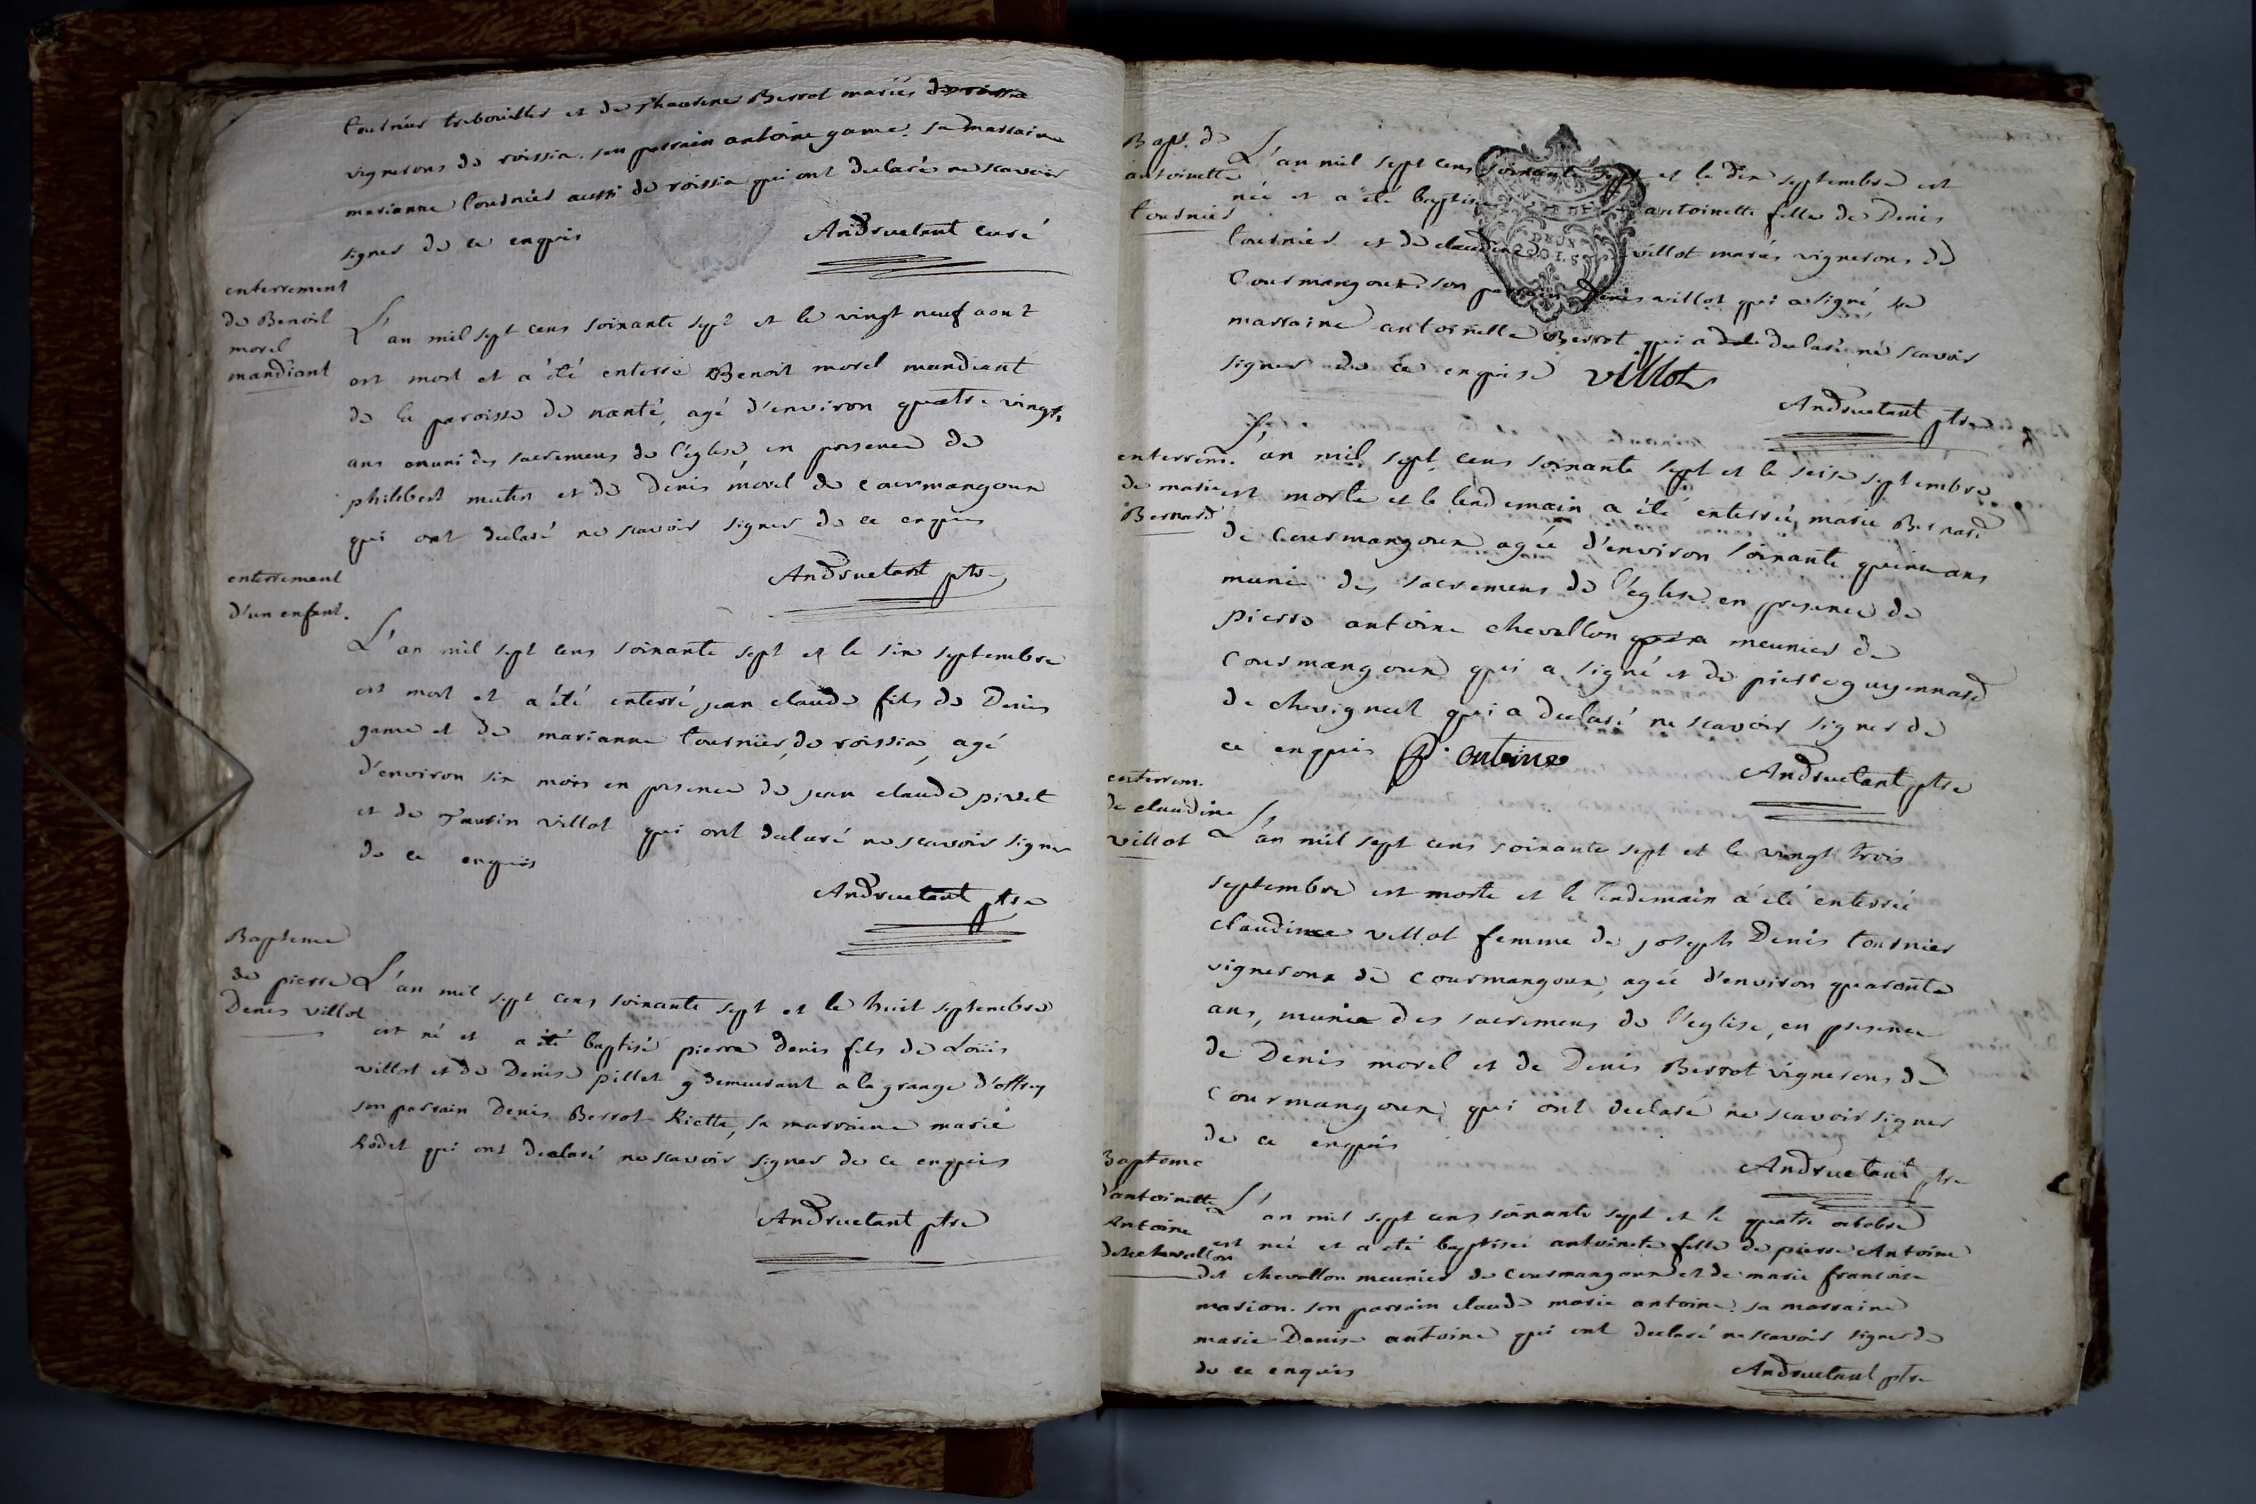 tournier trebouillet et de Berrot mariés
vignerons de roissia. son parrain antoine game. sa marraine
marianne tournier aussi de roissia qui ont declaré ne scavoir
signer de ce enquis
Andruetant curé
enterrement
de Benoit
morel
mandiant
L'an mil sept cens soixante sept et le vingt neuf aout
est mort et a été enterré Benoit morel mandiant
de la paroisse de nanté, agé d'environ quatre vingts
ans muni des sacremens de l'église, en presence de
philibert mutin et de Denis morel de courmangoux
qui ont declaré ne scavoir signer de ce enquis
Andruetant ptre
enterrement
d'un enfant.
L'an mil sept cens soixante sept et le six septembre
est mort et a été enterré jean claude fils de Denis
game et de marianne tournier, de roissia, agé
d'environ six mois en presence de jean claude pivet
et de villot qui ont declaré ne scavoir signer
de ce enquis
Andruetant ptre
Bapteme
de pierre
Denis villot
L'an mil sept cens soixante sept et le huit septembre
est né et a été baptisé pierre denis fils de Loüis
villot et de Denise pillet demeurant a la grange d'offrey
son parrain Denis Berrot Riette, sa marraine marie
Rodet qui ont declaré ne scavoir signer de ce enquis
Andruetant ptre
Bapt. de
antoinette
tournier
L'an mil sept cens soixante sept et le dix septembre est
née et a été baptisée antoinette fille de Denis
tournier et de claudine villot mariés vignerons de
Courmangoux. son parrain Denis villot qui a signé sa
marraine antoinette Berrot qui a declaré ne scavoir
signer de ce enquise villot
Andruetant ptre
enterrem.
de marie
Bernard
L'an mil sept cens soixante sept et le seise septembre
est morte et le lendemain a été enterrée marie Bernard
de Courmangoux agée d'environ soixante quinze ans
munie des sacremens de l'église en presence de
pierre antoine chevallon meunier de
Courmangoux qui a signé et de pierre guyennard
de chevignat qui a declaré ne scavoir signer de
ce enquis P. antoine
Andruetant ptre
enterrem.
de claudine
villot
L'an mil sept cens soixante sept et le vingt trois
septembre est morte et le lendemain a été enterrée
claudine villot femme de joseph Denis tournier
vigneron de courmangoux, agée d'environ quarante
ans, munie des sacremens de l'eglise, en presence
de Denis morel et de Denis Berrot vignerons de
Courmangoux qui ont declaré ne scavoir signer
de ce enquis
Andruetant ptre
Bapteme
d'antoinette
Antoine
dit chevallon
L'an mil sept cens soixante sept et le quatre octobre
est née et a été baptisée antoinete fille de pierre Antoine
dit chevallon meunier de courmangoux et de marie francoise
marion. son parrain claude marie antoine. sa marraine
marie Denise antoine qui ont declaré ne scavoir signer de
de ce enquis
Andruetant ptre